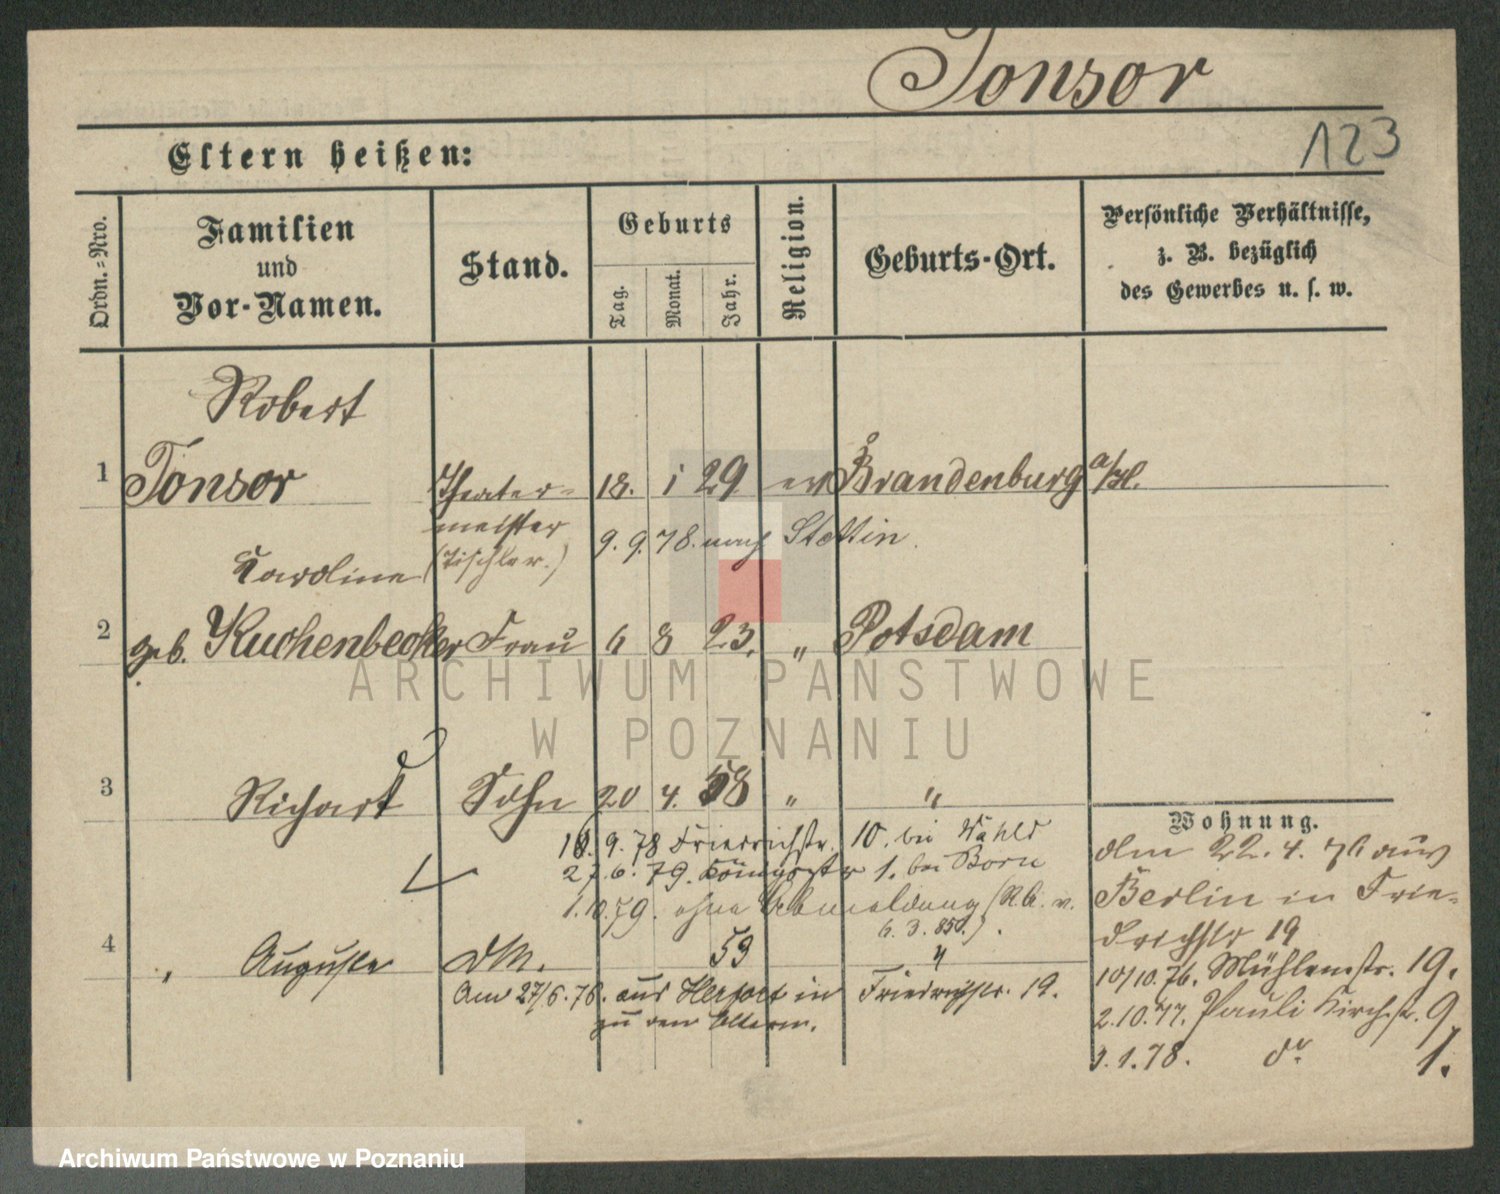 Tonsor
123
Eltern heißen:
Ordn.=Nro.
Familien
und
Vor-Namen.
Stand.
Geburts
Tag.
Monat.
Jahr.
Religion.
Geburts-Ort.
Persönliche Verhältnisse,
z. B. bezüglich
des Gewerbes u. s. w.
Robert
1 Tonsor Theater- 18. 1 29 ev Brandenburg a/H.
meister
(Tischler.)
9. 9. 78. nach Stettin.
Karoline
2 geb. Kuchenbecker Frau 6 8 23. " Potsdam
3 Richard Sohn 20 4. 58 " "
9. 78 Friedrichstr. 10. bei
27. 6. 79. Königsstr 1. bei Born
1. 10. 79. ohne Abmeldung (R.A. v.
6. 3. 850.).
4 " Auguste 59 "
Am 27/6. 76. aus in Friedrichstr. 19.
zu den Eltern.
Wohnung.
den 22. 4. 76 aus
Berlin in Frie-
drichstr 19
10/10. 76. Mühlenstr. 19.
2. 10. 77. Pauli Kirchstr. 9
1. 78. do 1.
ARCHIWUM PAŃSTWOWE
W POZNANIU
Archiwum Państwowe w Poznaniu